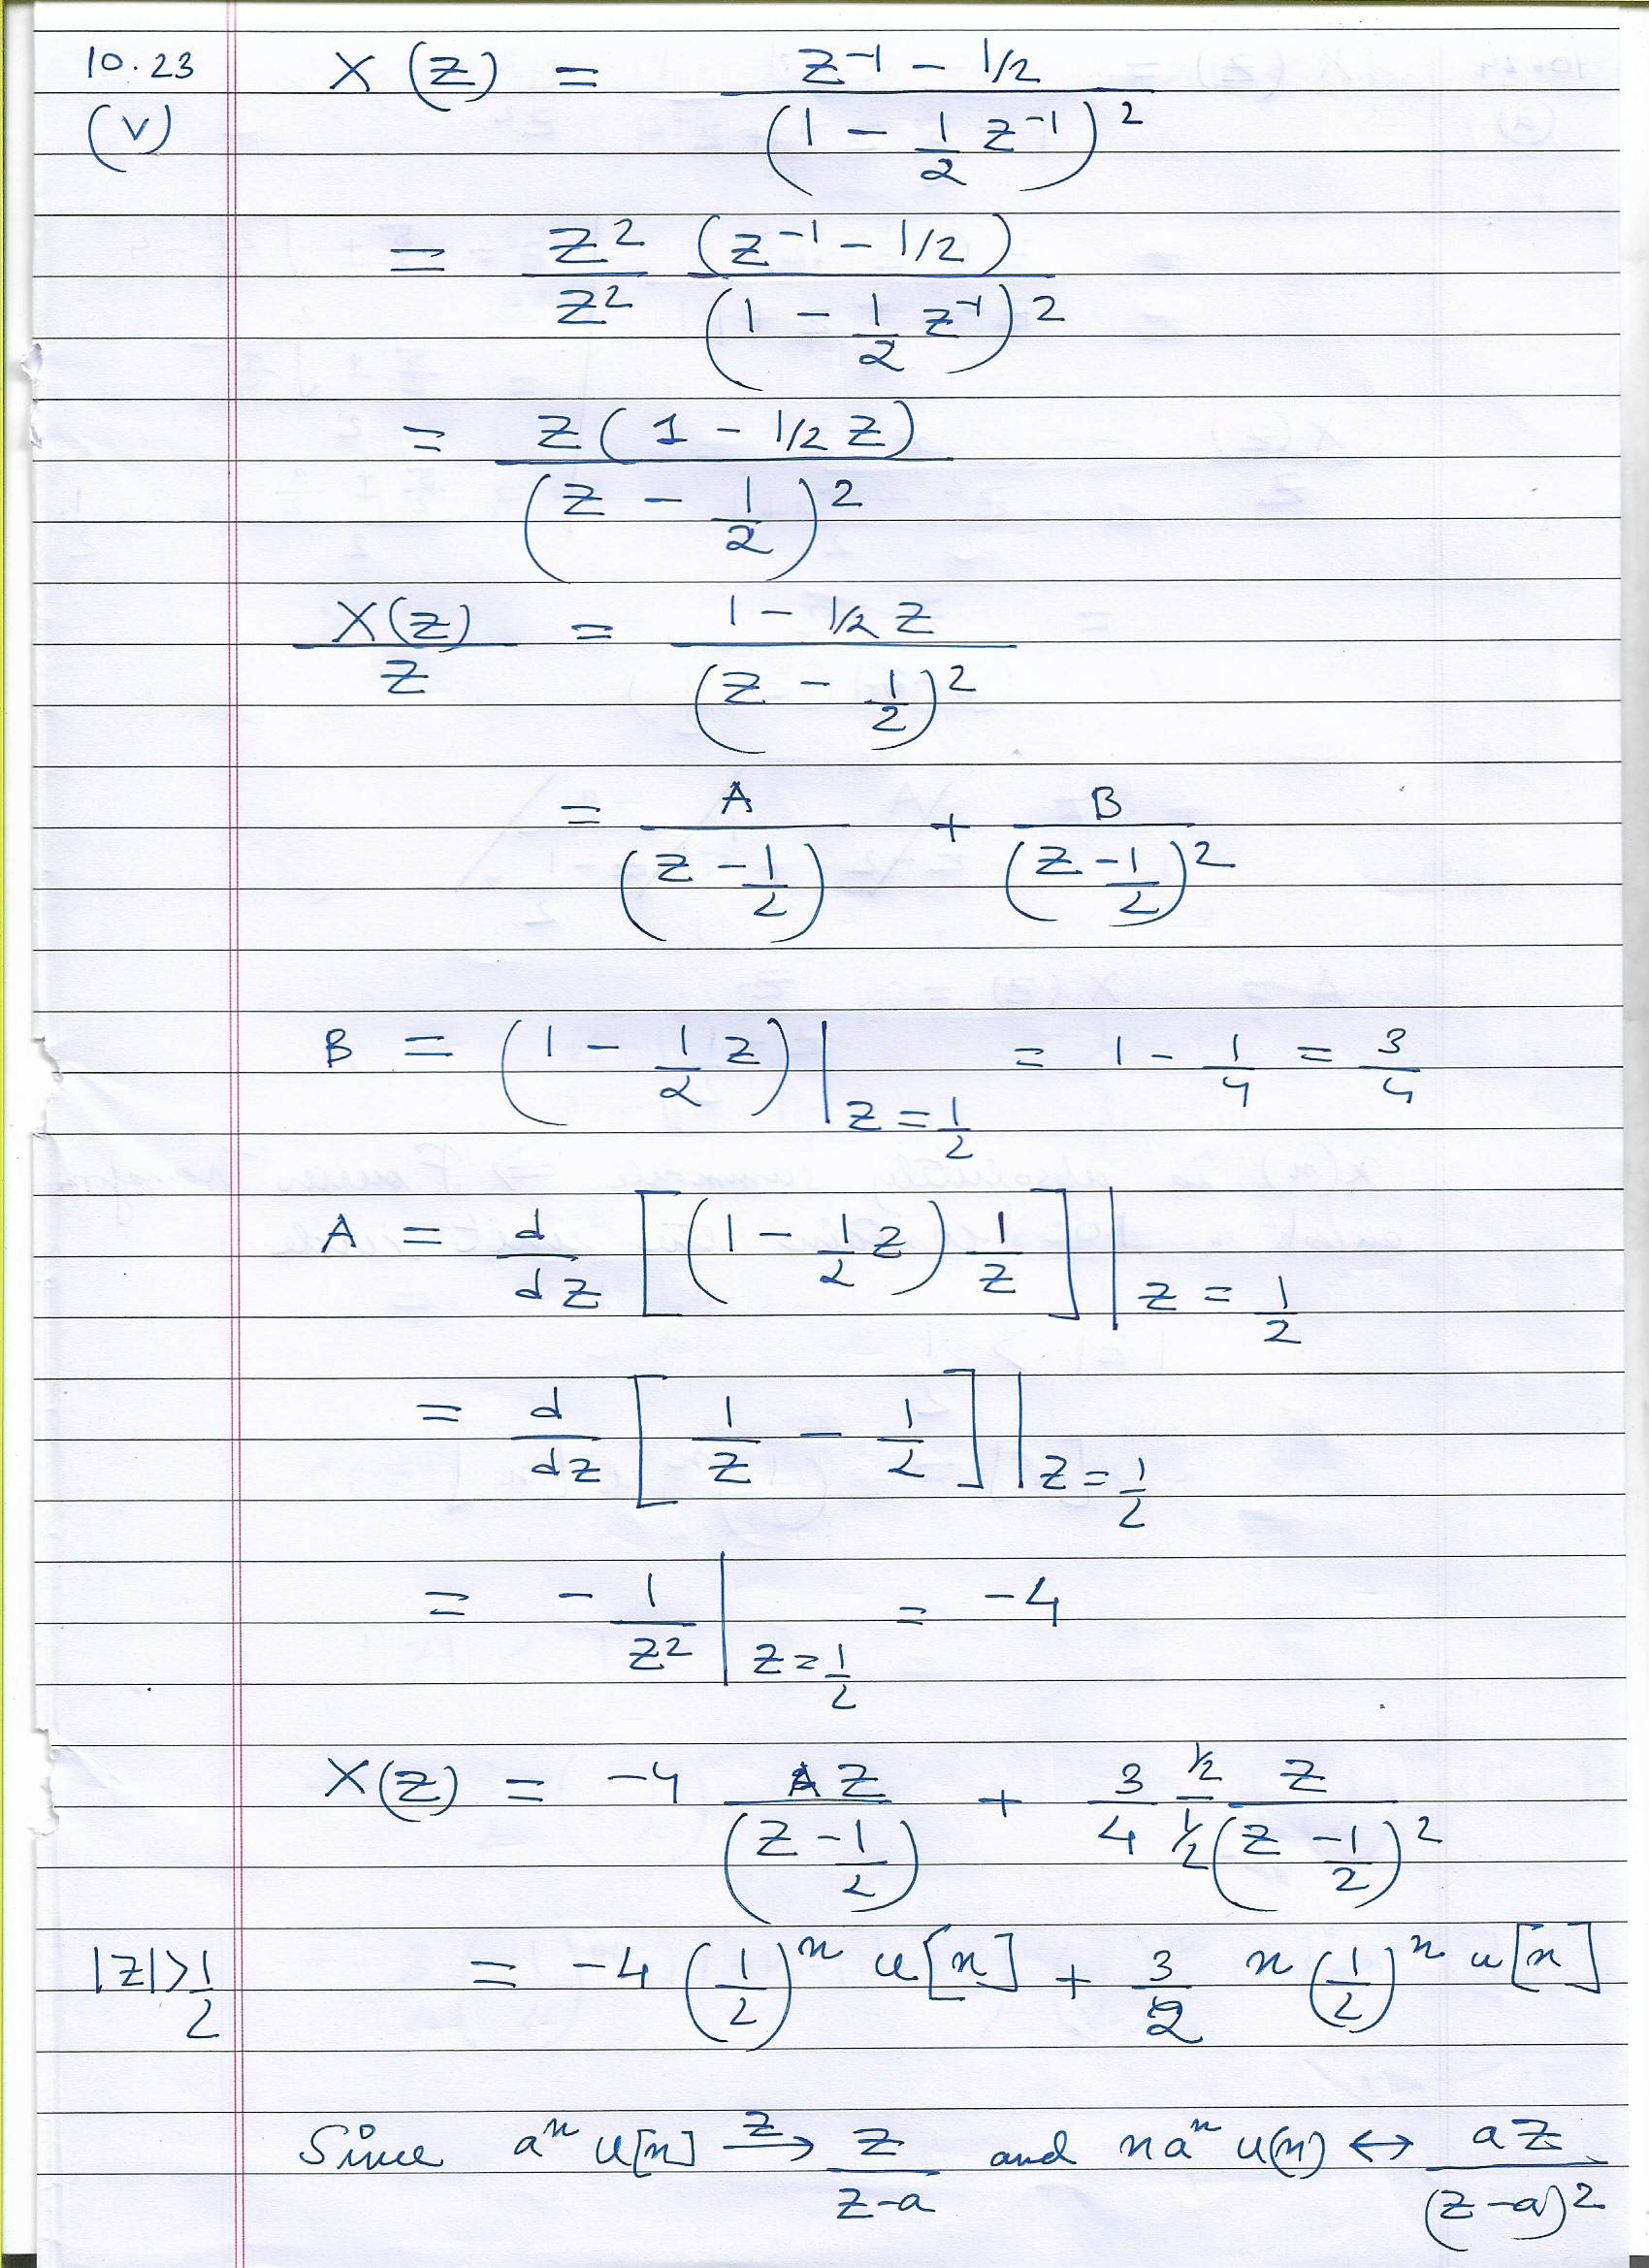 10.23 X(z) = (z⁻¹ - 1/2) / (1 - 1/2 z⁻¹)²
(v)
= z²/z² (z⁻¹ - 1/2) / (1 - 1/2 z⁻¹)²
= z(1 - 1/2 z) / (z - 1/2)²
X(z)/z = (1 - 1/2 z) / (z - 1/2)²
= A / (z - 1/2) + B / (z - 1/2)²
B = (1 - 1/2 z) |z = 1/2 = 1 - 1/4 = 3/4
A = d/dz [(1 - 1/2 z) 1/z] |z = 1/2
= d/dz [1/z - 1/2] |z = 1/2
= - 1/z² |z = 1/2 = -4
X(z) = -4 z / (z - 1/2) + 3/4 (1/2)/(1/2) z / (z - 1/2)²
|z| > 1/2 = -4 (1/2)ⁿ u[n] + 3/2 n (1/2)ⁿ u[n]
Since aⁿ u[n] —z→ z / (z-a) and naⁿ u(n) ↔ az / (z-a)²